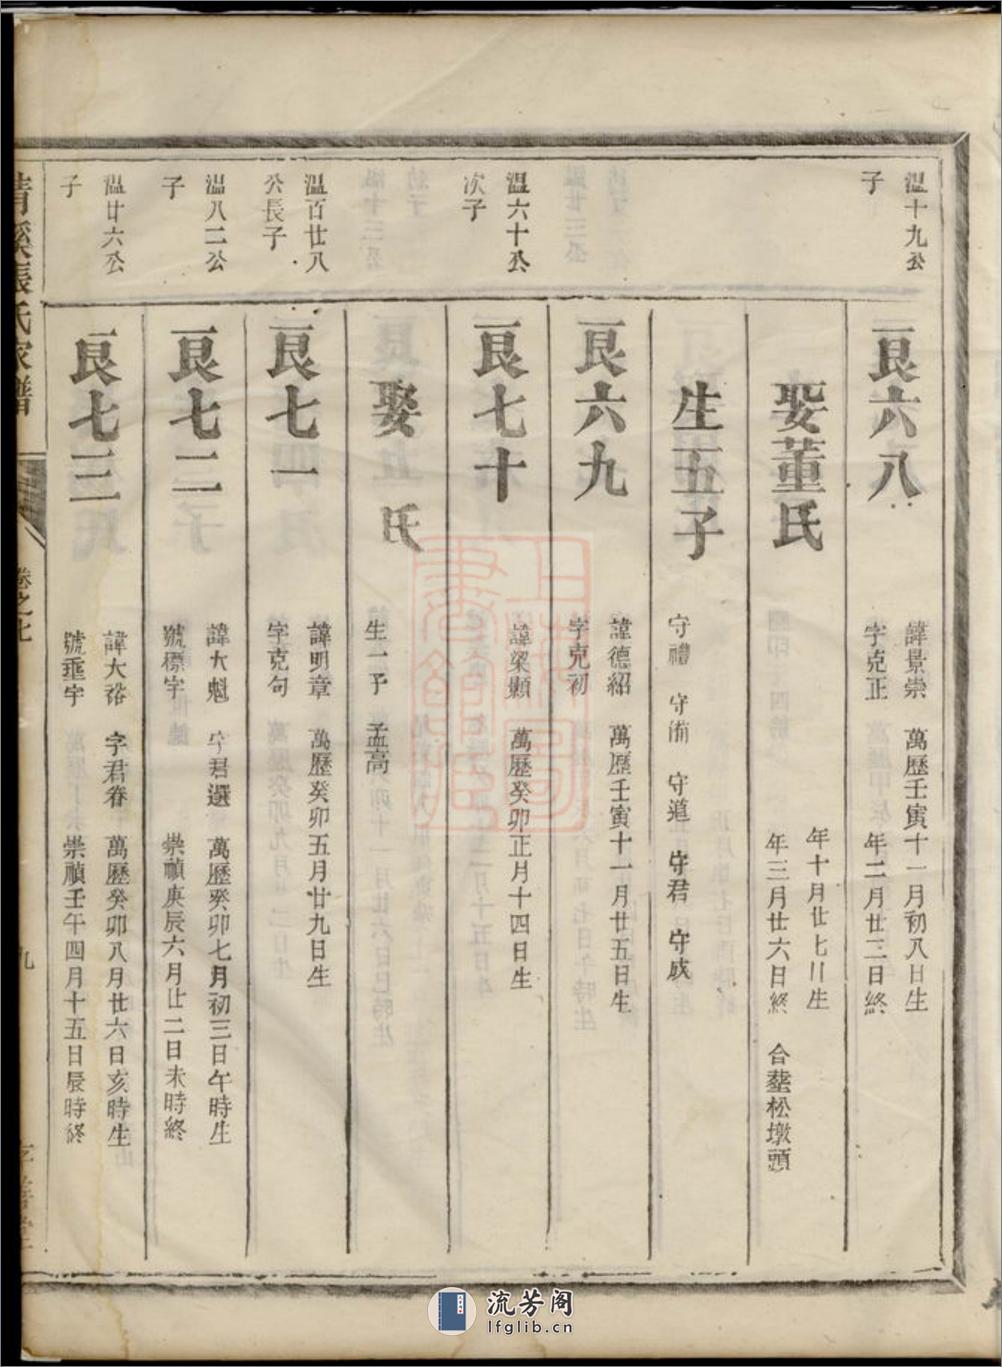 溫十九公
子
良六八
諱景崇 萬歷壬寅十一月初八日生
字克正 年二月廿三日終
娶董氏
年十月廿七日生
年三月廿六日終 合塟松墩頭
生五子
守禮 守道 守君 守成
良六九
諱德紹 萬歷壬寅十一月廿五日生
字克初
溫六十公
次子
良七十
諱梁顯 萬歷癸卯正月十四日生
娶 氏
生一子 孟高
溫百廿八
公長子
良七一
諱明章 萬歷癸卯五月廿九日生
字克句
溫八二公
子
良七二
諱大魁 字君選 萬歷癸卯七月初三日午時生
號標宇 崇禎庚辰六月廿二日未時終
溫廿六公
子
良七三
諱大裕 字君眷 萬歷癸卯八月廿六日亥時生
號垂宇 崇禎壬午四月十五日辰時終
清溪張氏家譜
卷之七
九
上海圖書館藏
流芳阁
lfglib.cn